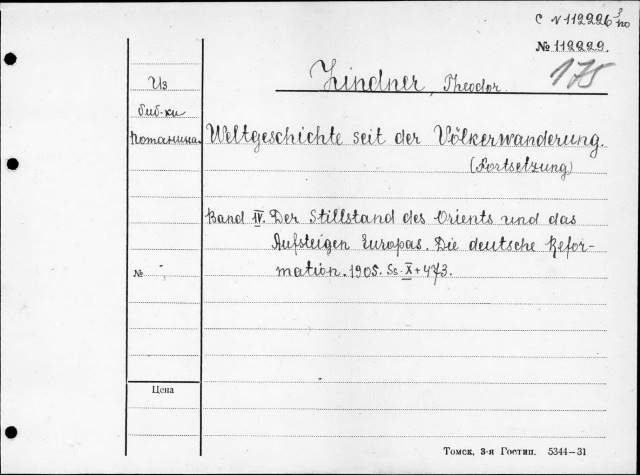 С № 112226 3 по
№ 112229.
175
Lindner, Theodor.
Из
биб-ки
Потанина.
Weltgeschichte seit der Völkerwanderung.
(Fortsetzung)
Band IV. Der Stillstand des Orients und das
Aufsteigen Europas. Die deutsche Refor-
mation. 1905. Ss. X + 473.
№
Цена
Томск, 3-я Гостип. 5344—31